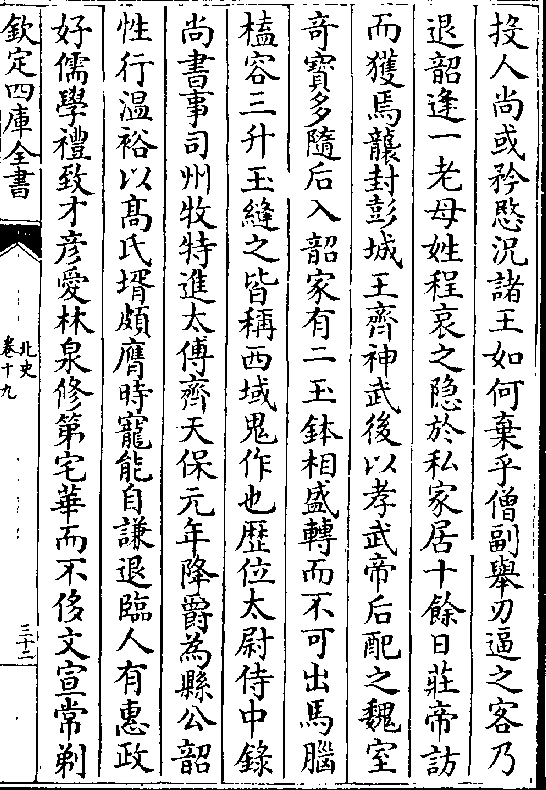 投人尚或矜愍況諸王如何棄乎僧副舉刃逼之客乃
退韶逢一老母姓程哀之隐於私家居十餘日莊帝訪
而獲焉襲封彭城王齊神武後以孝武帝后配之魏室
竒寶多隨后入韶家有二玉鉢相盛轉而不可出馬腦
榼容三升玉縫之皆稱西域鬼作也歴位太尉侍中錄
尚書事司州牧特進太傅齊天保元年降爵為縣公韶
性行温裕以髙氏壻頗膺時寵能自謙退臨人有惠政
好儒學禮致才彦愛林泉修第宅華而不侈文宣常剃
欽定四庫全書
北史
卷十九
三十二